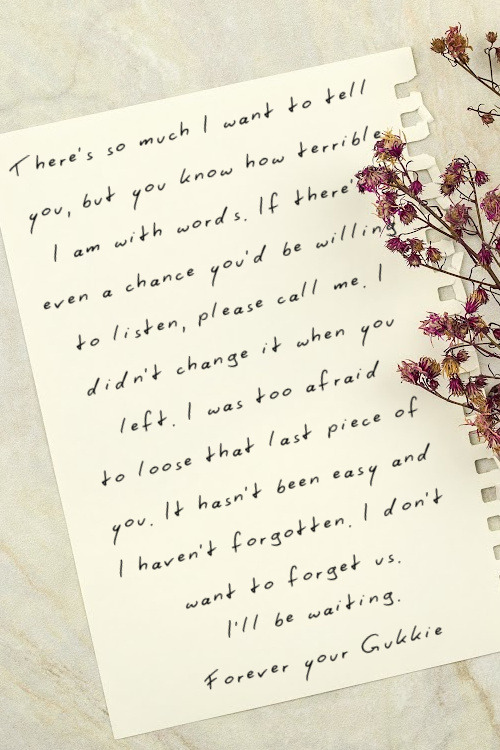 There's so much I want to tell
you, but you know how terrible
I am with words. If there's
even a chance you'd be willing
to listen, please call me. I
didn't change it when you
left. I was too afraid
to loose that last piece of
you. It hasn't been easy and
I haven't forgotten. I don't
want to forget us.
I'll be waiting.
Forever your Gukkie